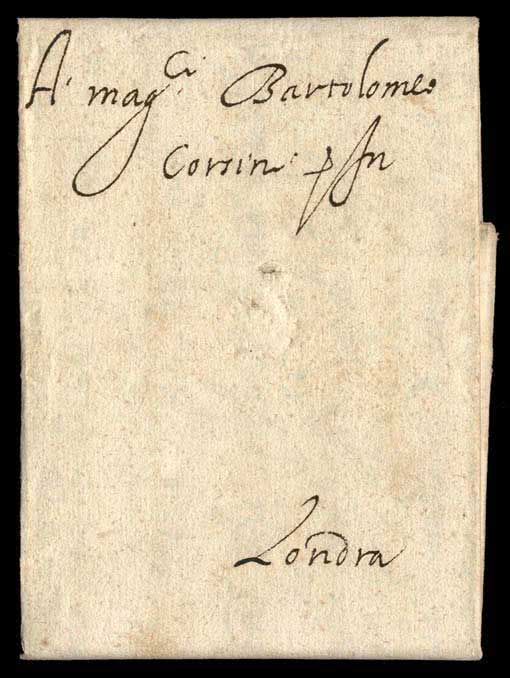 A' mag.ci Bartolomeo
Corsini
Londra